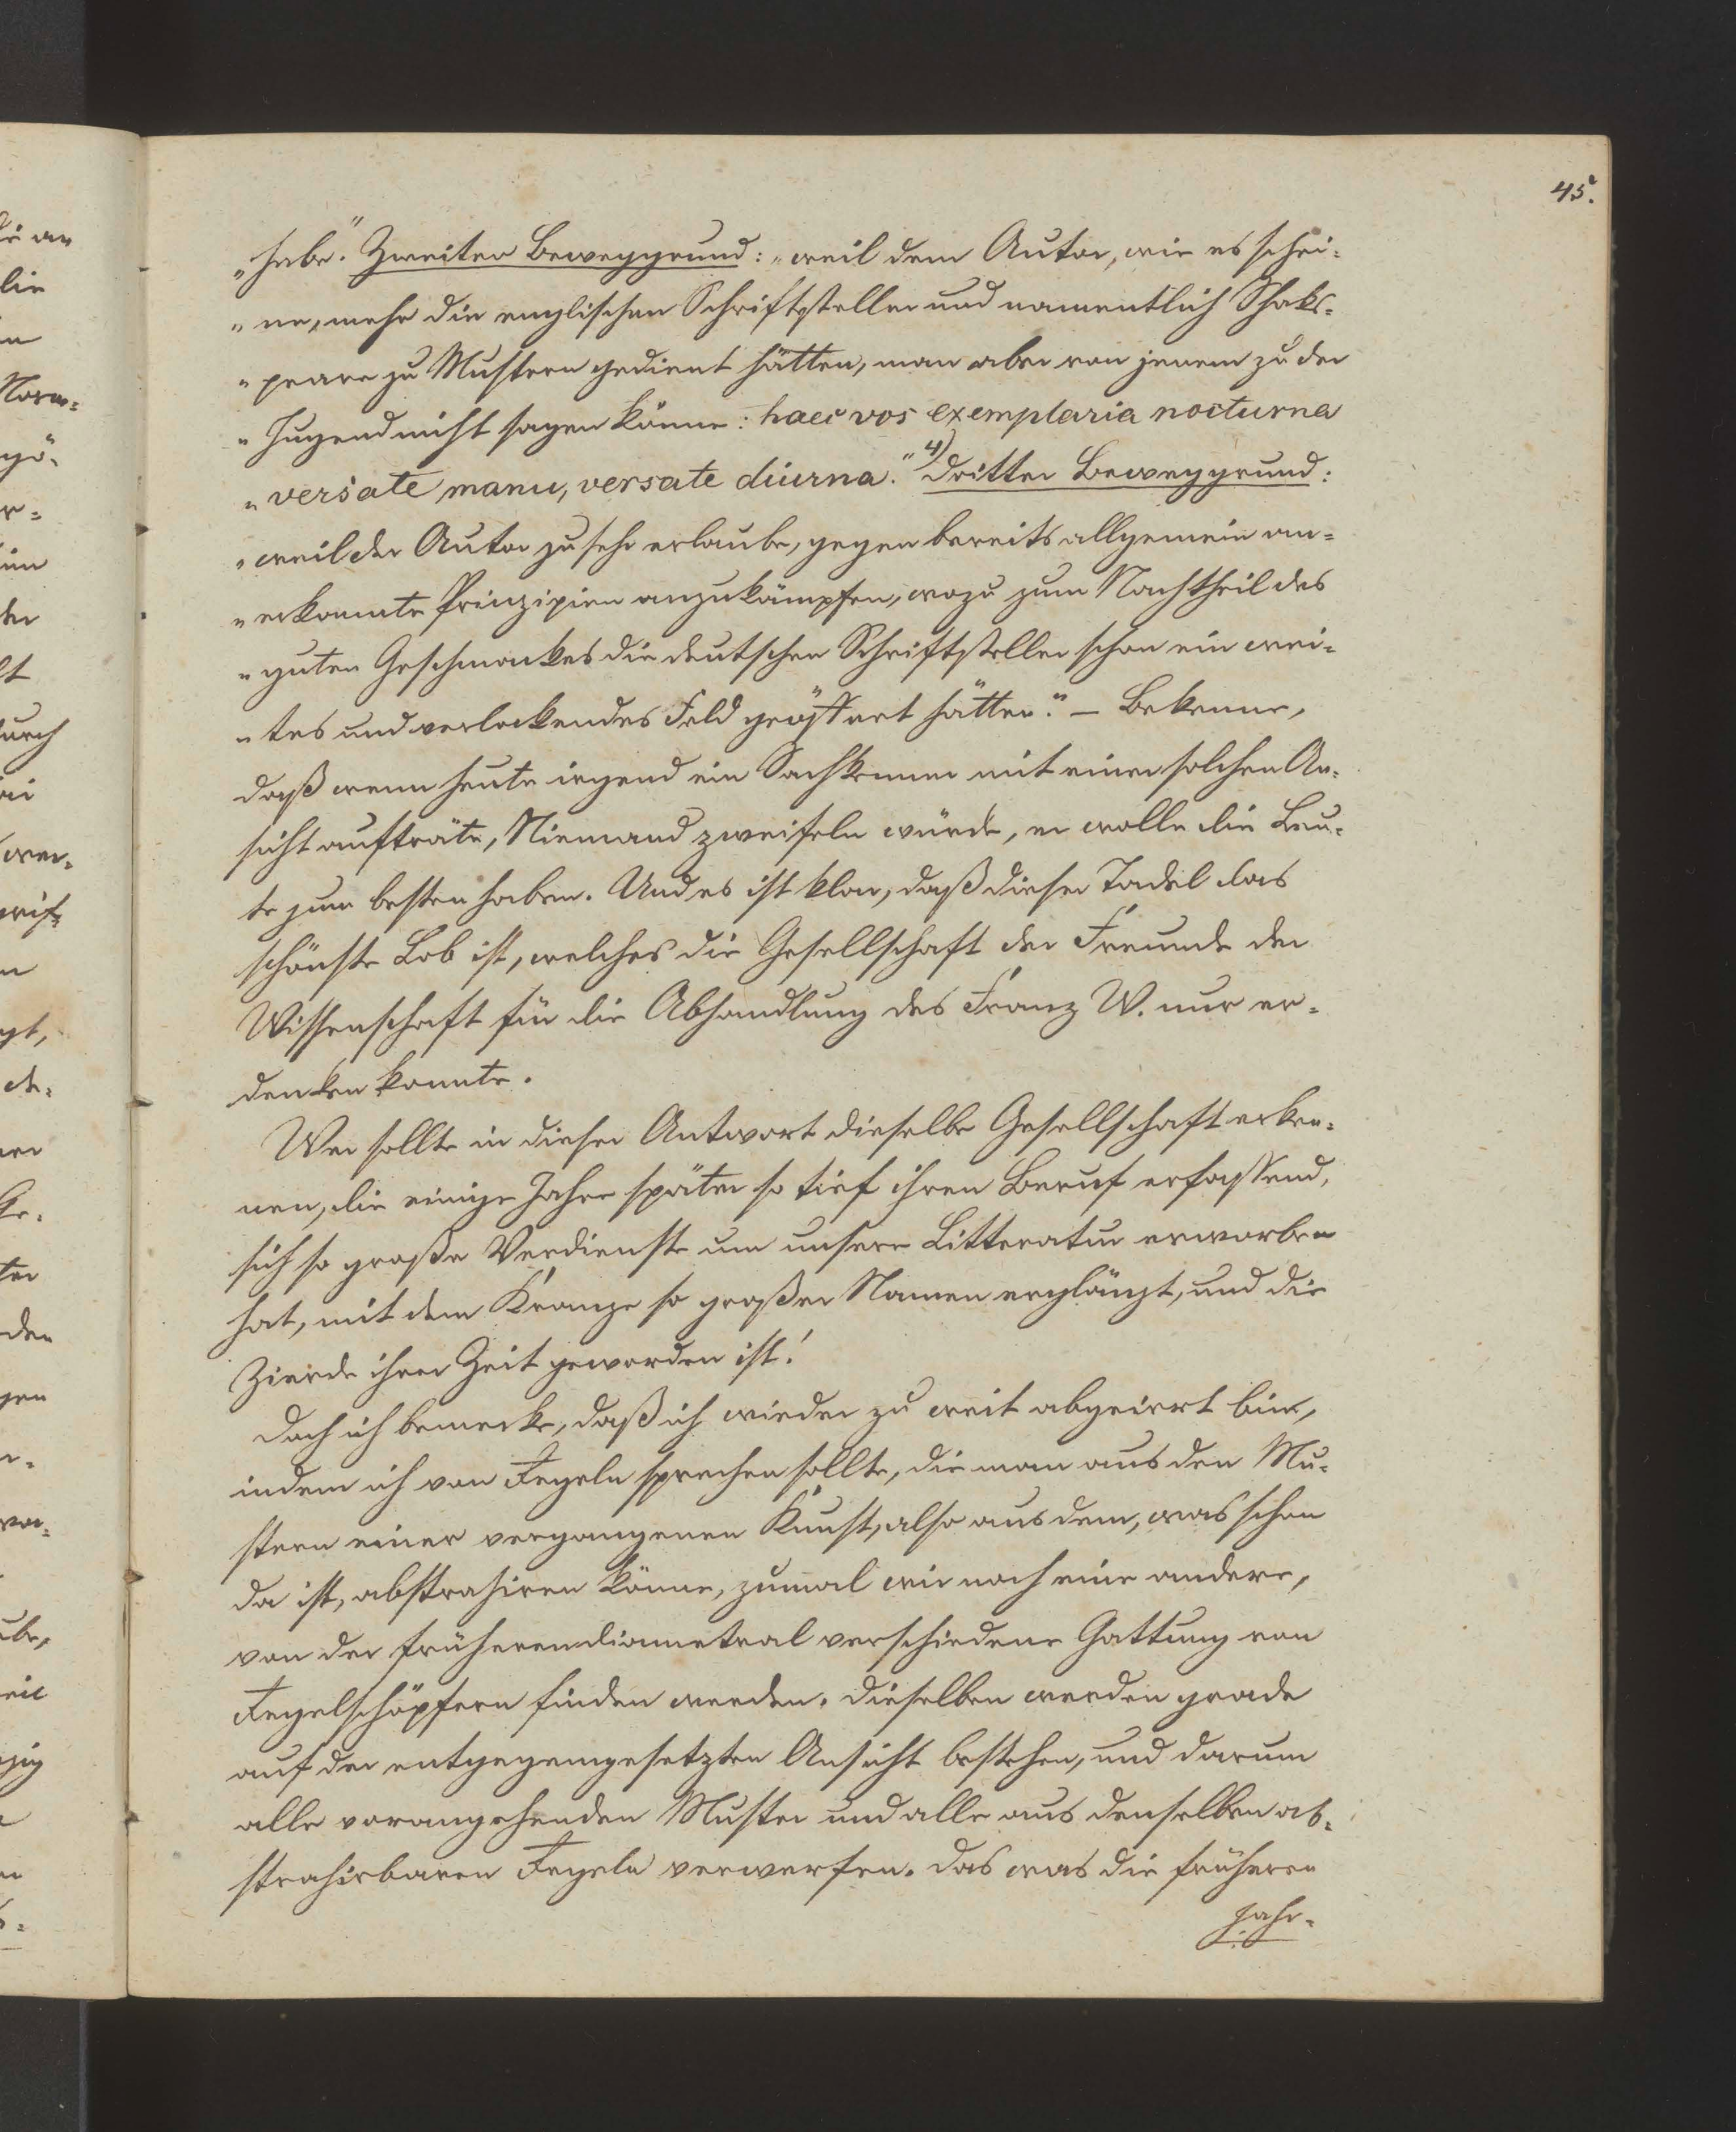 45.
„habe.“ Zweiter Beweggrund: „weil dem Autor, wie es schei-
„ne, mehr die englischen Schriftsteller und namentlich Shaks-
„peare zu Mustern gedient hätten, man aber von jenem zu der
„Jugend nicht sagen könne: haec vos exemplaria nocturna
„versate manu, versate diurna.“ 4) Dritter Beweggrund:
„weil der Autor zu sehr erlaube, gegen bereits allgemein an-
„erkannte Prinzipien anzukämpfen, wozu zum Nachtheil des
„guten Geschmackes die deutschen Schriftsteller schon ein wei-
„tes und verlockendes Feld geöffnet hätten.“ – Bekenne,
daß wenn heute irgend ein Sachkenner mit einer solchen An-
sicht aufträte, Niemand zweifeln würde, er wolle die Leu-
te zum besten haben. Und es ist klar, daß dieser Tadel das
schönste Lob ist, welches die Gesellschaft der Freunde der
Wissenschaft für die Abhandlung des Franz W. nur er-
denken konnte.
Wer sollte in dieser Antwort dieselbe Gesellschaft erken-
nen, die einige Jahre später so tief ihren Beruf erfassend,
sich so große Verdienste um unsere Litteratur erworben
hat, mit dem Kranze so großer Namen erglänzt, und die
Zierde ihrer Zeit geworden ist!
Doch ich bemerke, daß ich wieder zu weit abgeirrt bin,
indem ich von Regeln sprechen sollte, die man aus den Mu-
stern einer vergangenen Kunst, also aus dem, was schon
da ist, abstrahiren könne, zumal wir noch eine andere,
von der früheren diametral verschiedene Gattung von
Regelschöpfern finden werden. Dieselben werden grade
auf der entgegengesetzten Ansicht bestehen, und darum
alle vorangehenden Muster und alle aus denselben ab-
strahirbaren Regeln verwerfen. Das was die früheren
Jahr-